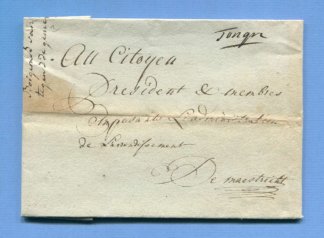 Tongre
Au Citoyen
President & membres
Composant L'administration
de L'arrondissement
De maestricht